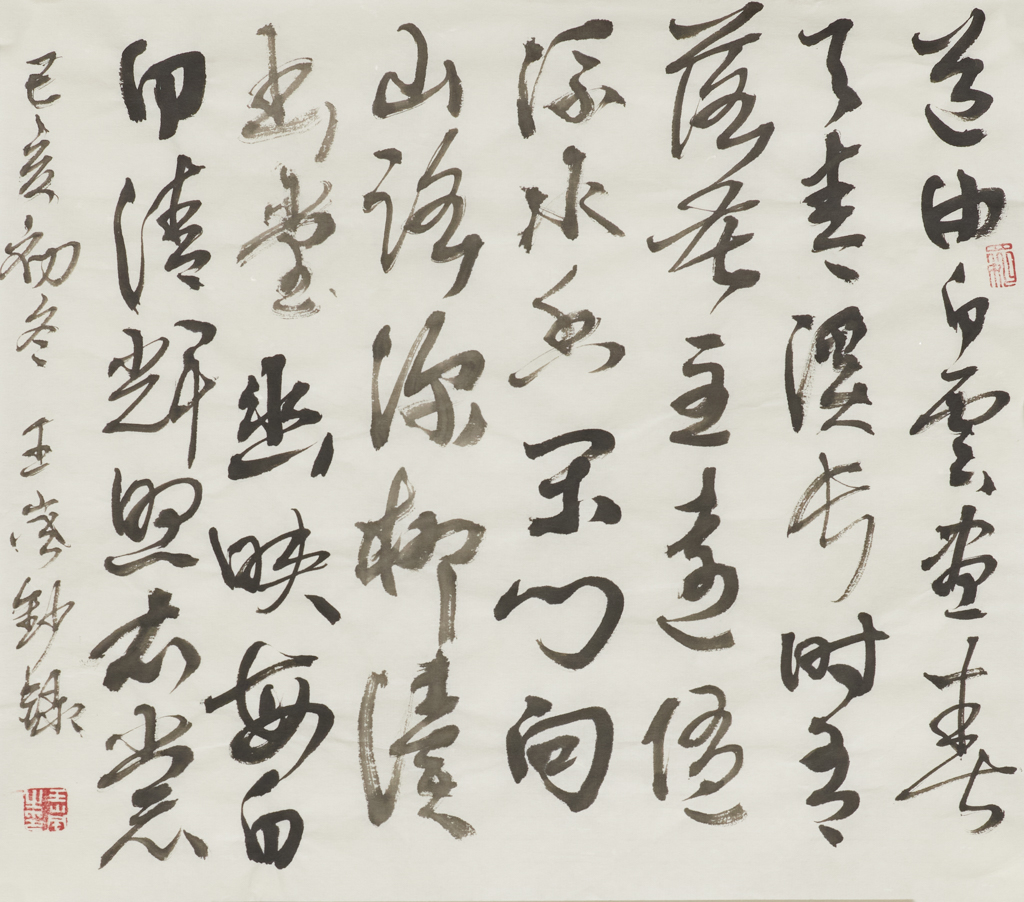 道由白雲盡春
与青溪長时有
落花至遠随
流水香閑門向
山路深柳讀
書堂幽映每白
日清輝照衣裳
己亥初冬 王 鈔録